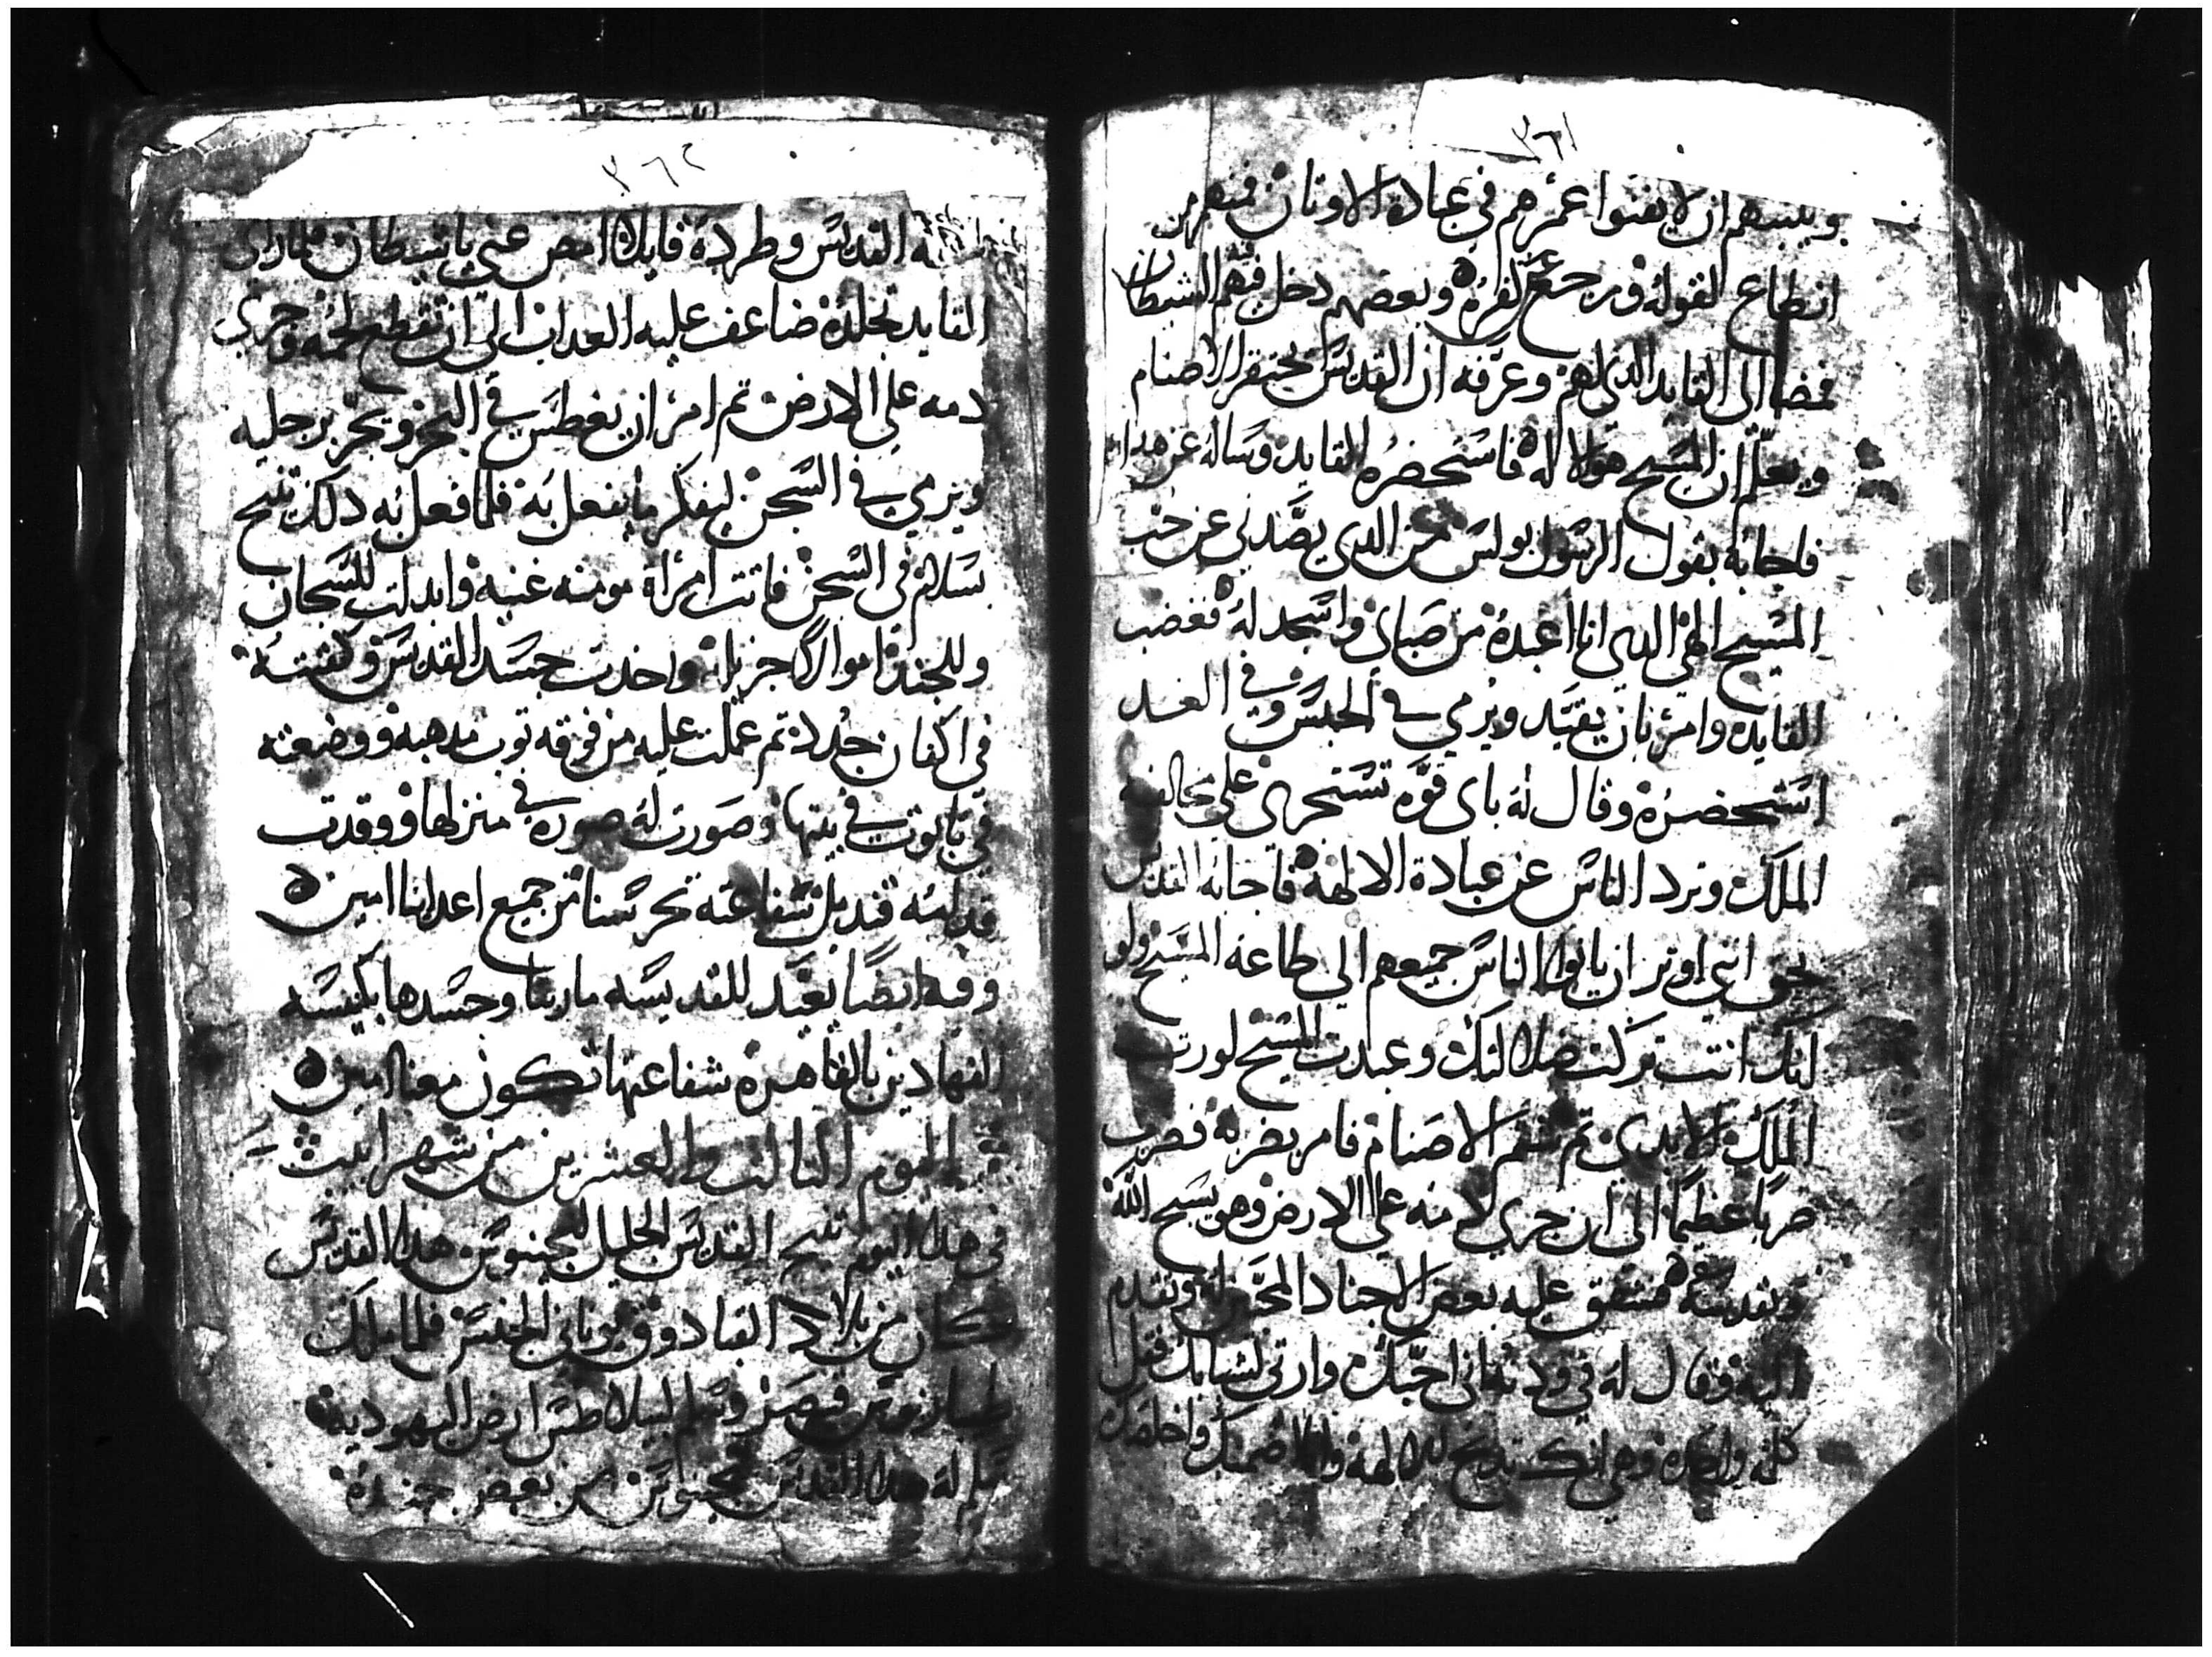 ٣٦١
وينبههم ان لا يفنوا عمرهم في عبادة الاوتان فمنهم من
انطاع لقوله ورجع عن كفره وبعضهم دخل فيهم الشيطان
فمضا الى القايد الذي لهم وعرفه ان القديس يحتقر الاصنام
ويعلم ان المسيح هو الاله فاستحضره القايد وساله عن هدا
فاجابه بقول الرسول بولس من الدي يصدني عن حب
المسيح الهي الدي انا اعبده من صباي واسجد له فغضب
القايد وامر بان يقيد ويرمي في الحبس وفي الغد
استحضره وقال له باي قوه تستجري على مخالفة
الملك وترد الناس عن عبادة الالهة فاجابه القديس
بحق انني اوتر ان ياتوا الناس جميعهم الي طاعة المسيح ولو
انك انت تركت ضلالتك وعبدت المسيح لورت
الملك الابدي تم شتم الاصنام فامر بضربه فضرب
ضربا عظيما الى ان جري دمه علي الارض وهو يسبح الله
ويقدسه فشفق عليه بعض الاجناد المحبين له وتقدم
اليه وقال له في ودنه اني احبك وارتي لشبابك فقل
كلمه واحده وهي انك تدبح للالهة وانا اضمنك واخلصك
٣٦٢
القديس وطرده قايلا امض عني يا شيطان فلما راى
القايد تجلده ضاعف عليه العداب الى ان تقطع لحمه وجري
دمه علي الارض تم امر ان يغطس في البحر ويجر برجليه
ويرمي في السجن ليفكر ما يفعل به فلما فعل به دلك تنيح
بسلام في السجن فاتت امراة مومنه غنية وابدلت للسجان
وللجند اموالا جزيلة واخدت جسد القديس وكفنته
في اكفان جدد تم عملت عليه من فوقه توب مدهبه ووضعته
في تابوت في بيتها وصورت له صوره في منزلها ووقدت
قدامه قنديل شفاعته تحرسنا من جميع اعداينا امين
وفيه ايضا نعيد للقديسه مارينا وجسدها بكنيسة
النهادين بالقاهره شفاعتها تكون معنا امين
اليوم التالت والعشرين من شهر ابيب
في هدا اليوم تنيح القديس الجليل لنجينوس هدا القديس
كان من بلاد القبادوق يوناني الجنس فلما ملك
طباريوس قيصر وسلم لبيلاطس ارض اليهودية
سلم له هدا القديس لنجينوس من بعض جنده